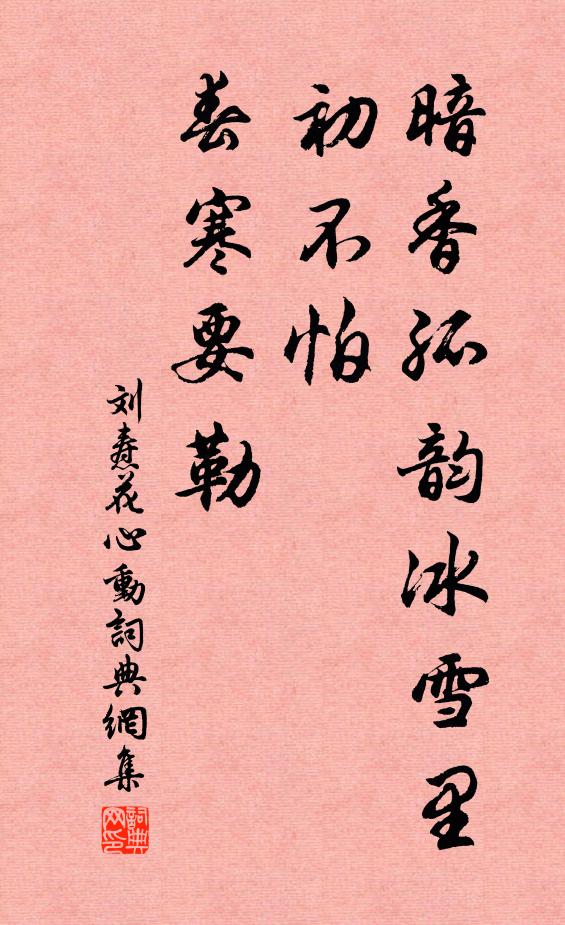 暗香孤韵冰雪里
初不怕
春寒要勒
刘焘花心動詞典網集
詞典网印